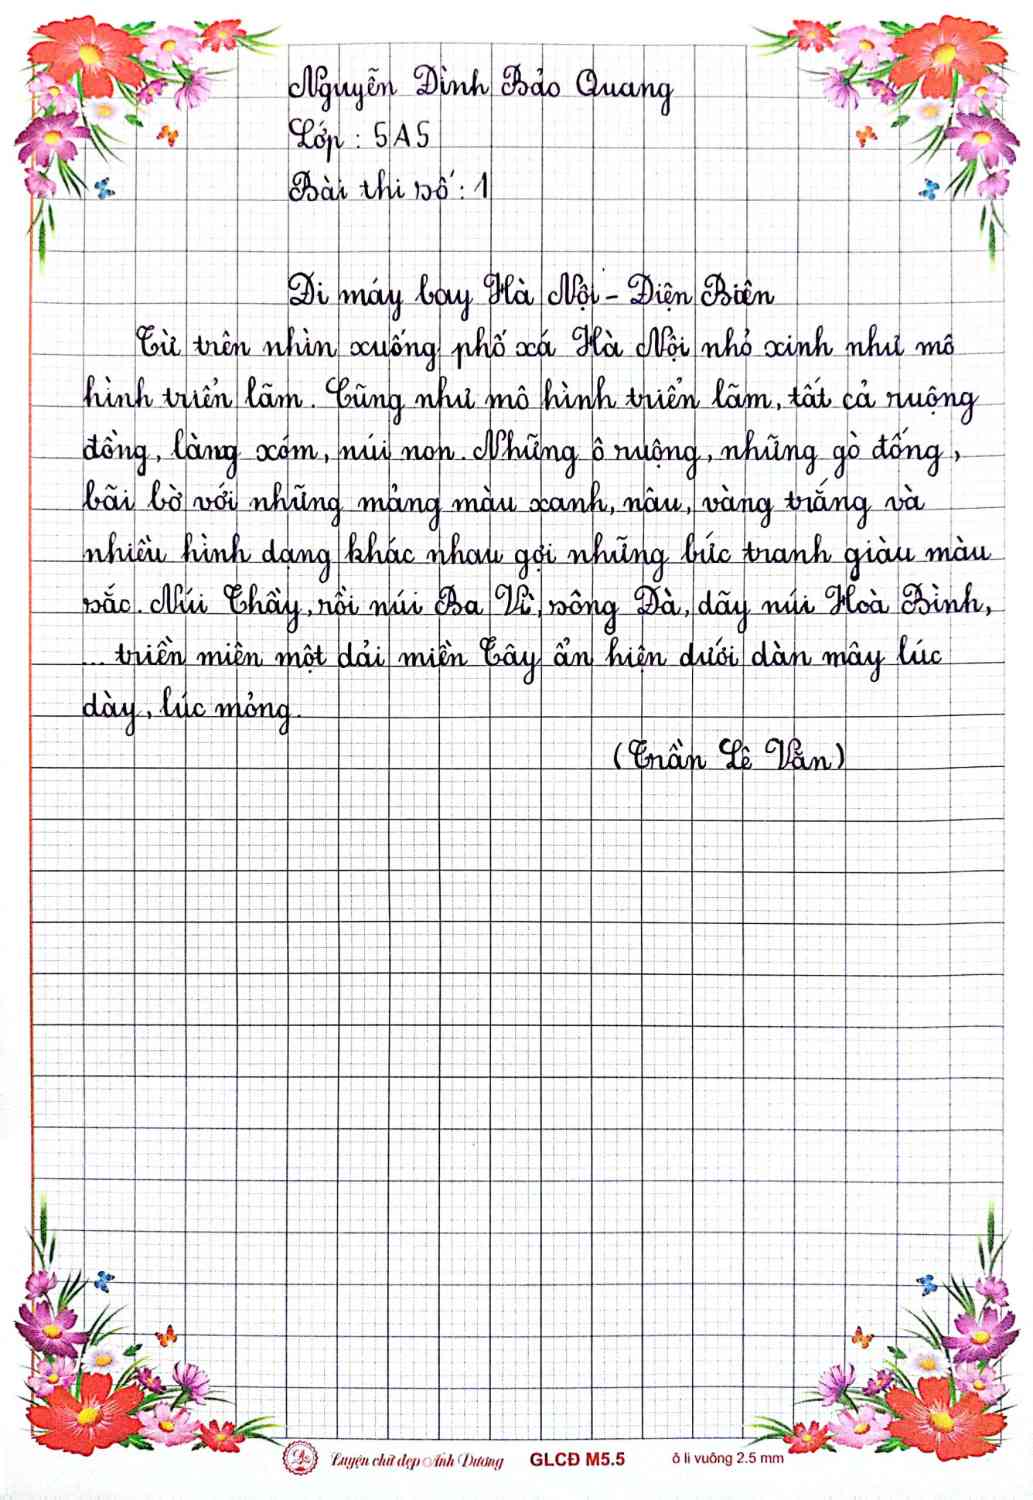 Nguyễn Đình Bảo Quang
Lớp : 5A5
Bài thi số : 1
Đi máy bay Hà Nội - Điện Biên
Từ trên nhìn xuống phố xá Hà Nội nhỏ xinh như mô
hình triển lãm. Cũng như mô hình triển lãm, tất cả ruộng
đồng, làng xóm, núi non. Những ô ruộng, những gò đống,
bãi bờ với những mảng màu xanh, nâu, vàng trắng và
nhiều hình dạng khác nhau gợi những bức tranh giàu màu
sắc. Núi Thầy, rồi núi Ba Vì, sông Đà, dãy núi Hoà Bình,
... triền miên một dải miền Tây ẩn hiện dưới dàn mây lúc
dày, lúc mỏng.
(Trần Lê Văn)
Luyện chữ đẹp Ánh Dương GLCĐ M5.5 ô li vuông 2.5 mm